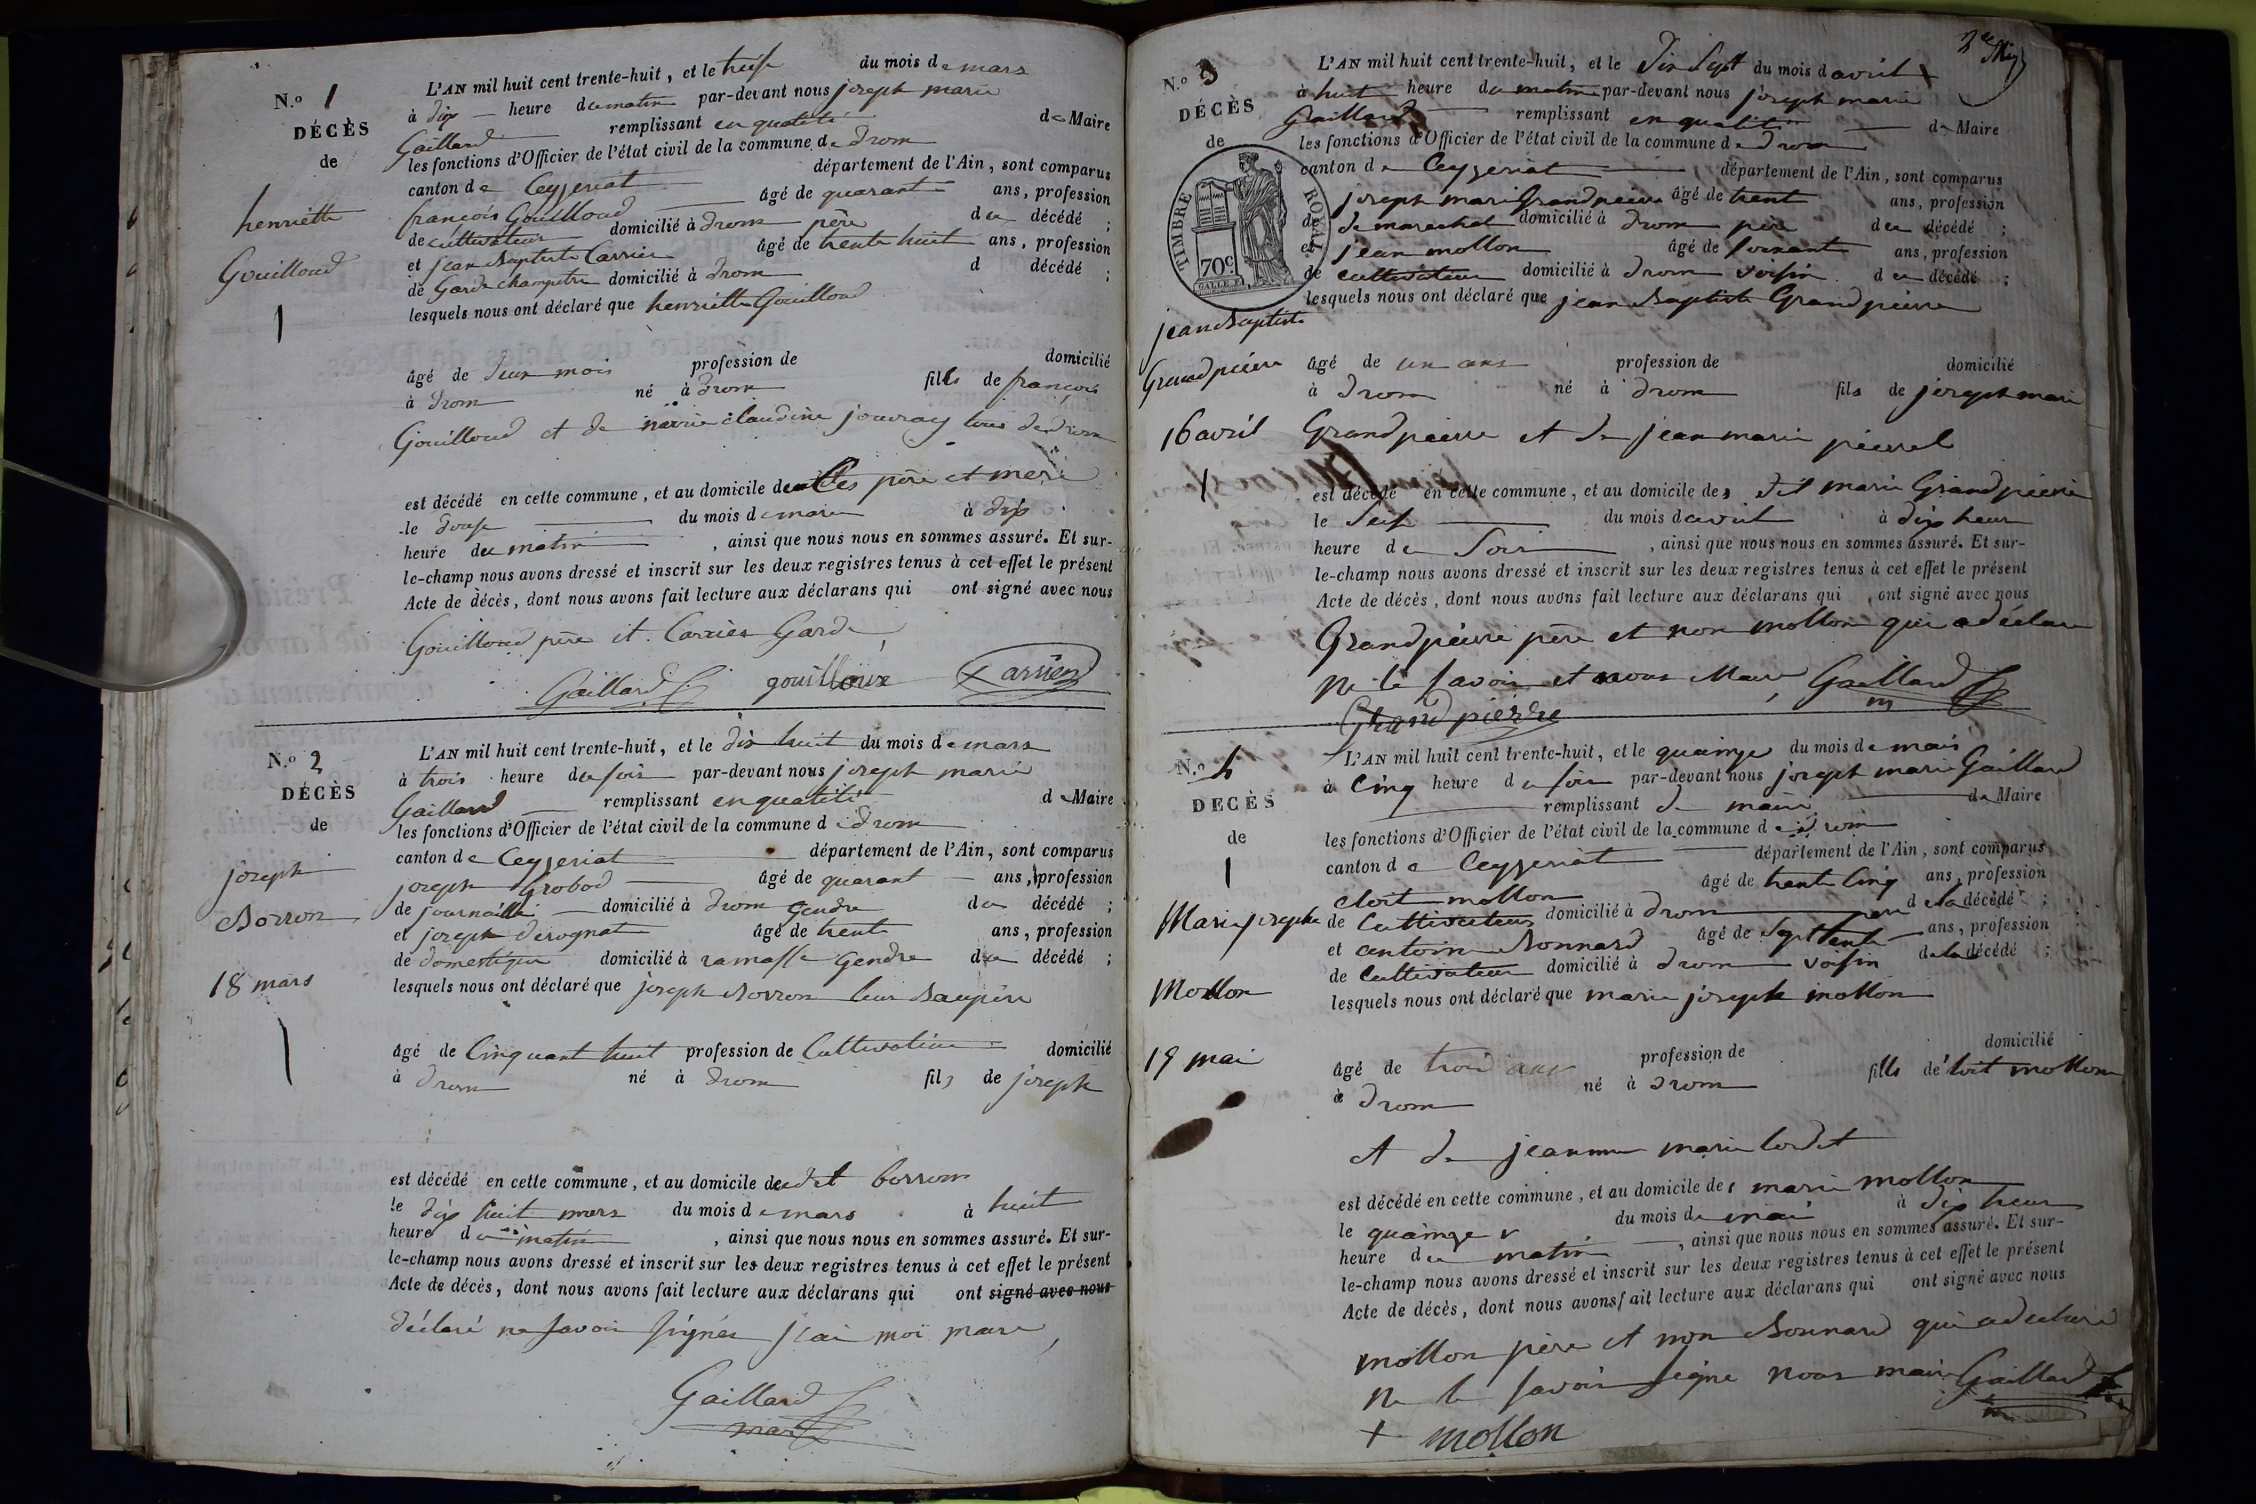 N.o 1
DÉCÈS
de
henriette
Gouilloud
1
L'AN mil huit cent trente-huit, et le treise du mois de mars
à dix heure du matin par-devant nous joseph marie
Gaillard remplissant en qualité de Maire
les fonctions d'Officier de l'état civil de la commune de Drom
canton de Ceyzeriat département de l'Ain, sont comparus
françois Gouilloud âgé de quarante ans, profession
de cultivateur domicilié à Drom père du décédé ;
et jean Baptiste Carrier âgé de trente huit ans, profession
de Garde champetre domicilié à Drom d décédé ;
lesquels nous ont déclaré que henriette Gouilloud
âgé de deux mois profession de domicilié
à Drom né à Drom fille de françois
Gouilloud et de marie claudine jouvray tous de drom
est décédé en cette commune, et au domicile de ses père et mere
le douse du mois de mars à dix
heure du matin , ainsi que nous nous en sommes assuré. Et sur-
le-champ nous avons dressé et inscrit sur les deux registres tenus à cet effet le présent
Acte de décès, dont nous avons fait lecture aux déclarans qui ont signé avec nous
Gouilloud père et Carrier Garde
Gaillard gouilloux Carrier
N.o 2
DÉCÈS
de
joseph
Borron
18 mars
L'AN mil huit cent trente-huit, et le dix huit du mois de mars
à trois heure du soir par-devant nous joseph marie
Gaillard remplissant en qualité de Maire
les fonctions d'Officier de l'état civil de la commune de Drom
canton de Ceyzeriat département de l'Ain, sont comparus
joseph Grobod âgé de quarant ans, profession
de journailli domicilié à Drom Gendre du décédé ;
et joseph derognat âgé de trente ans, profession
de domestique domicilié à ramasse Gendre du décédé ;
lesquels nous ont déclaré que joseph Borron leur Beaupère
âgé de Cinquant huit profession de Cultivateur domicilié
à Drom né à Drom fils de joseph
est décédé en cette commune, et au domicile de dit borron
le dix huit mars du mois de mars à huit
heure du matin , ainsi que nous nous en sommes assuré. Et sur-
le-champ nous avons dressé et inscrit sur les deux registres tenus à cet effet le présent
Acte de décès, dont nous avons fait lecture aux déclarans qui ont signé avec nous
déclaré ne savoir signer jeai moi maire
Gaillard
maire
N.o 3
DÉCÈS
de
TIMBRE ROYAL
70c
GALLE F.
jean Baptiste
Grandpierre
16 avril
L'AN mil huit cent trente-huit, et le Dix Sept du mois d avril
à huit heure du matin par-devant nous joseph marie
Gaillard remplissant en qualité de Maire
les fonctions d'Officier de l'état civil de la commune de Drom
canton de Ceyzeriat département de l'Ain, sont comparus
joseph marie Grandpierre âgé de trent ans, profession
de marechal domicilié à Drom père du décédé ;
et jean mollon âgé de soixant ans, profession
de cultivateur domicilié à Drom voisin du décédé ;
lesquels nous ont déclaré que jean Baptiste Grandpierre
âgé de un ans profession de domicilié
à Drom né à Drom fils de joseph marie
Grandpierre et de jean marie pierrel
est décédé en cette commune, et au domicile de dit marie Grandpierre
le seise du mois d avril à dix heur
heure de Soir , ainsi que nous nous en sommes assuré. Et sur-
le-champ nous avons dressé et inscrit sur les deux registres tenus à cet effet le présent
Acte de décès, dont nous avons fait lecture aux déclarans qui ont signé avec nous
Grandpierre père et non mollon qui a déclare
ne le savoir et nous Maire Gaillard
Grandpierre
N.o 4
DÉCÈS
de
1
Marie josephe
Mollon
15 mai
L'AN mil huit cent trente-huit, et le quainze du mois de mais
à Cinq heure du soir par-devant nous joseph marie Gaillard
remplissant de maire de Maire
les fonctions d'Officier de l'état civil de la commune de Drom
canton de Ceyzeriat département de l'Ain, sont comparus
eloit mollon âgé de trente Cinq ans, profession
de Cultivateur domicilié à Drom père de la décédé ;
et antoine Bonnard âgé de Septtente ans, profession
de Cultivateur domicilié à Drom voisin de la décédé ;
lesquels nous ont déclaré que marie joseph mollon
âgé de trois ans profession de domicilié
à Drom né à Drom fille de loit mollon
et de jeanne marie
est décédé en cette commune, et au domicile de marie mollon
le quainze du mois de mai à dix heur
heure du matin , ainsi que nous nous en sommes assuré. Et sur-
le-champ nous avons dressé et inscrit sur les deux registres tenus à cet effet le présent
Acte de décès, dont nous avons fait lecture aux déclarans qui ont signé avec nous
mollon père et non Bonnard qui a declaré
ne le savoir signe nous maire Gaillard
+ mollon